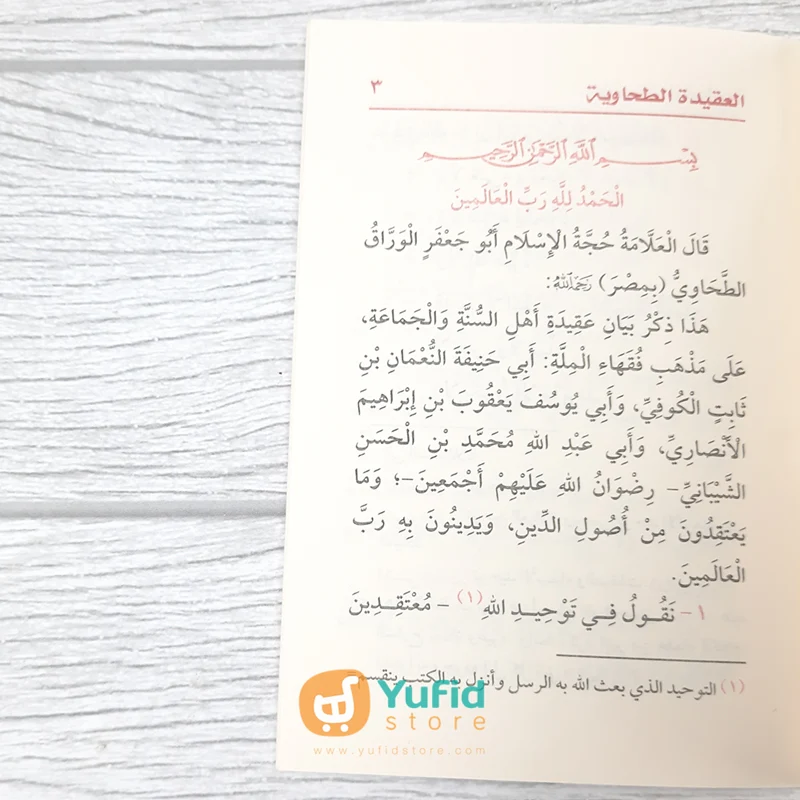 العقيدة الطحاوية ٣
بِسْمِ اللَّهِ الرَّحْمَنِ الرَّحِيمِ
الْحَمْدُ لِلَّهِ رَبِّ الْعَالَمِينَ
قَالَ الْعَلَّامَةُ حُجَّةُ الْإِسْلَامِ أَبُو جَعْفَرٍ الْوَرَّاقُ
الطَّحَاوِيُّ (بِمِصْرَ) رَحِمَهُ اللَّهُ:
هَذَا ذِكْرُ بَيَانِ عَقِيدَةِ أَهْلِ السُّنَّةِ وَالْجَمَاعَةِ،
عَلَى مَذْهَبِ فُقَهَاءِ الْمِلَّةِ: أَبِي حَنِيفَةَ النُّعْمَانِ بْنِ
ثَابِتٍ الْكُوفِيِّ، وَأَبِي يُوسُفَ يَعْقُوبَ بْنِ إِبْرَاهِيمَ
الْأَنْصَارِيِّ، وَأَبِي عَبْدِ اللهِ مُحَمَّدِ بْنِ الْحَسَنِ
الشَّيْبَانِيِّ- رِضْوَانُ اللهِ عَلَيْهِمْ أَجْمَعِينَ-؛ وَمَا
يَعْتَقِدُونَ مِنْ أُصُولِ الدِّينِ، وَيَدِينُونَ بِهِ رَبَّ
الْعَالَمِينَ.
١- نَقُولُ فِي تَوْحِيدِ اللهِ(١) - مُعْتَقِدِينَ
(١) التوحيد الذي بعث الله به الرسل وأنزل به الكتب ينقسم
Yufid
store
www.yufidstore.com